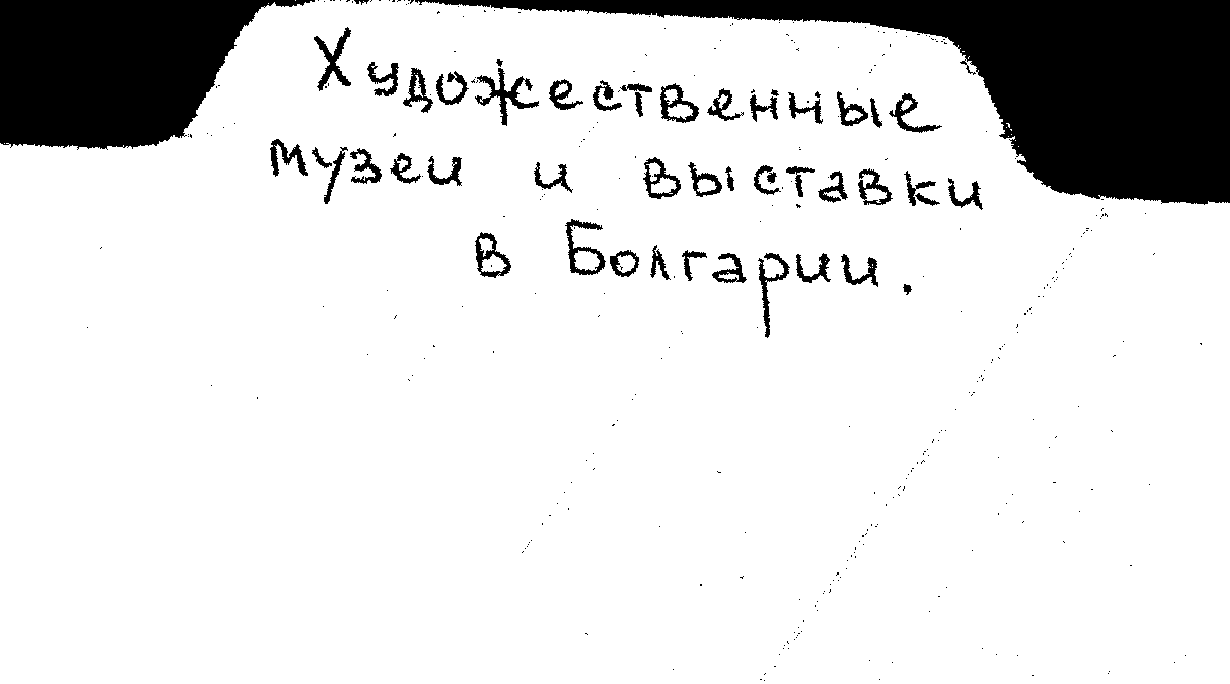 Художественные
музеи и выставки
в Болгарии.